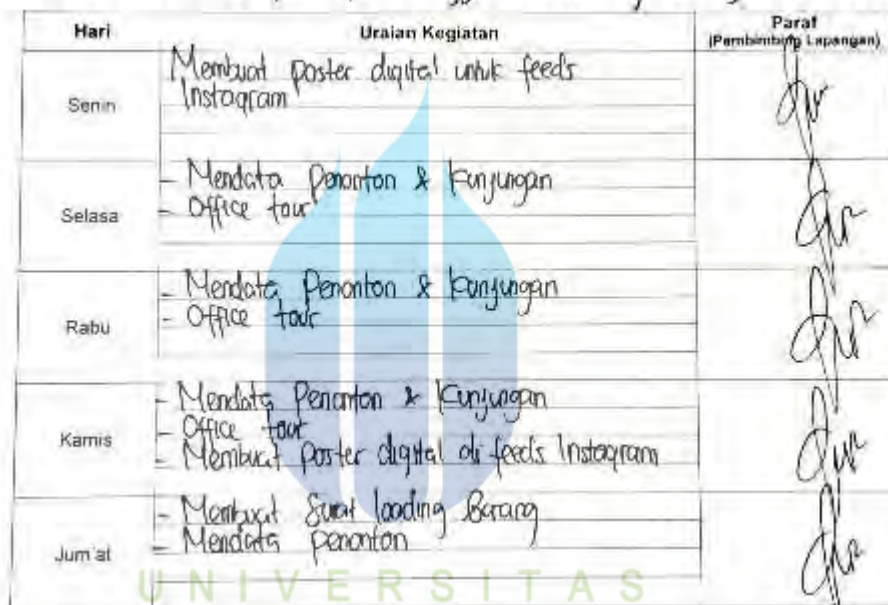 Hari Uraian Kegiatan Paraf
(Pembimbing Lapangan)
Senin
Membuat poster digital untuk feeds
Instagram
Selasa
- Mendata Penonton & Kunjungan
- Office tour
Rabu
- Mendata Penonton & Kunjungan
- Office tour
Kamis
- Mendata Penonton & Kunjungan
- Office tour
- Membuat poster digital di feeds Instagram
Jum'at
- Membuat Surat loading Barang
- Mendata penonton
UNIVERSITAS